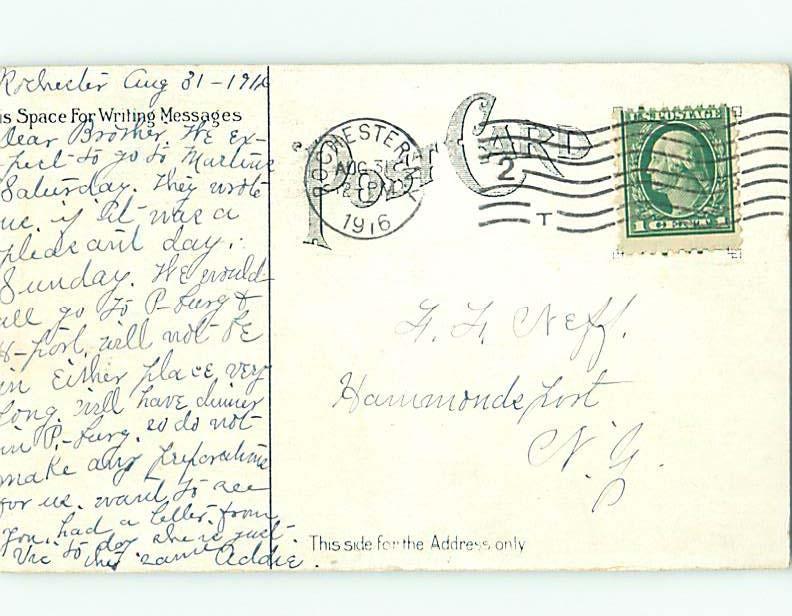 Rochester Aug 31-1916
is Space For Writing Messages
Dear Brother, We ex-
pect to go to Martins
Saturday. They wrote
us. if it was a
pleasant day.
Sunday. We would
all go to P-burg &
H-port, will not be
in Either place very
long. will have dinner
in P.-burg. so do not
make any preparations
for us. want to see
you, had a letter from
Vic to day she is just
the same Addie.
POST CARD
ROCHESTER, N.Y.
AUG 31
2 PM
1916
2
T
U.S. POSTAGE
1 CENT 1
F. F. Neff.
Hammondsport
N. Y.
This side for the Address only